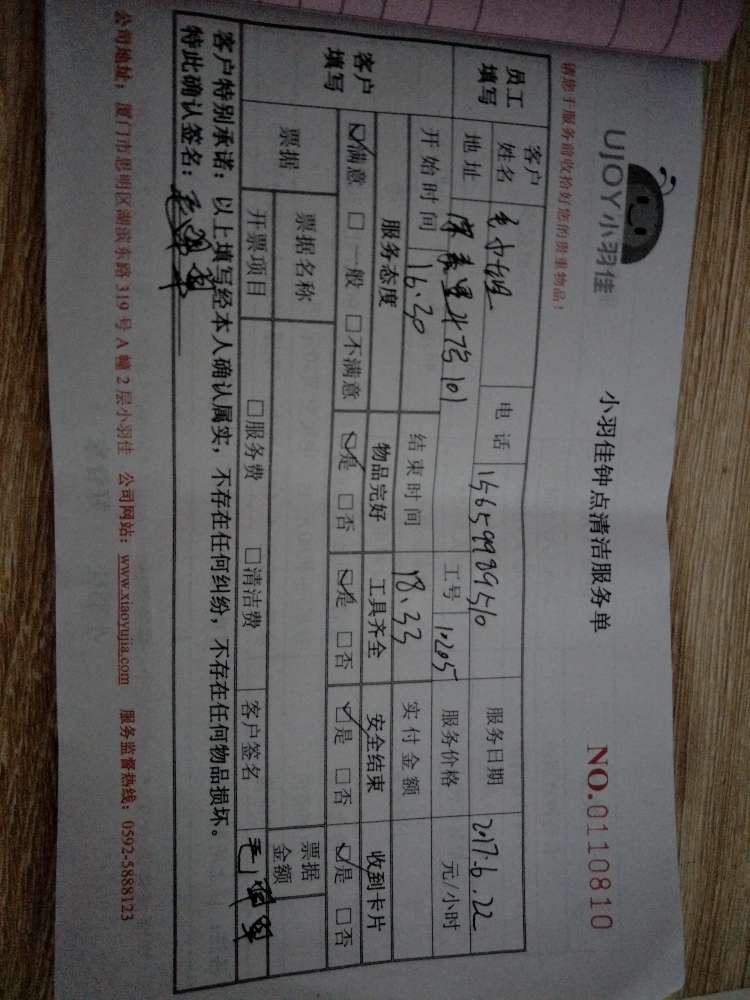 UJOY小羽佳
小羽佳钟点清洁服务单
NO.0110810
请您于服务前收拾好您的贵重物品！
员工填写
客户姓名
电话 15659989510
服务日期 2017.6.22
地址
101
工号 10205
服务价格 元/小时
开始时间 16:30
结束时间 18:33
实付金额
客户填写
服务态度 物品完好 工具齐全 安全结束 收到卡片
☑满意 □一般 □不满意 ☑是 □否 ☑是 □否 ☑是 □否 ☑是 □否
票据 票据名称 票据金额
开票项目 □服务费 □清洁费 客户签名
客户特别承诺：以上填写经本人确认属实，不存在任何纠纷，不存在任何物品损坏。
特此确认签名：
公司地址：厦门市思明区湖滨东路319号A幢2层小羽佳 公司网站：www.xiaoyujia.com 服务监督热线：0592-5888123